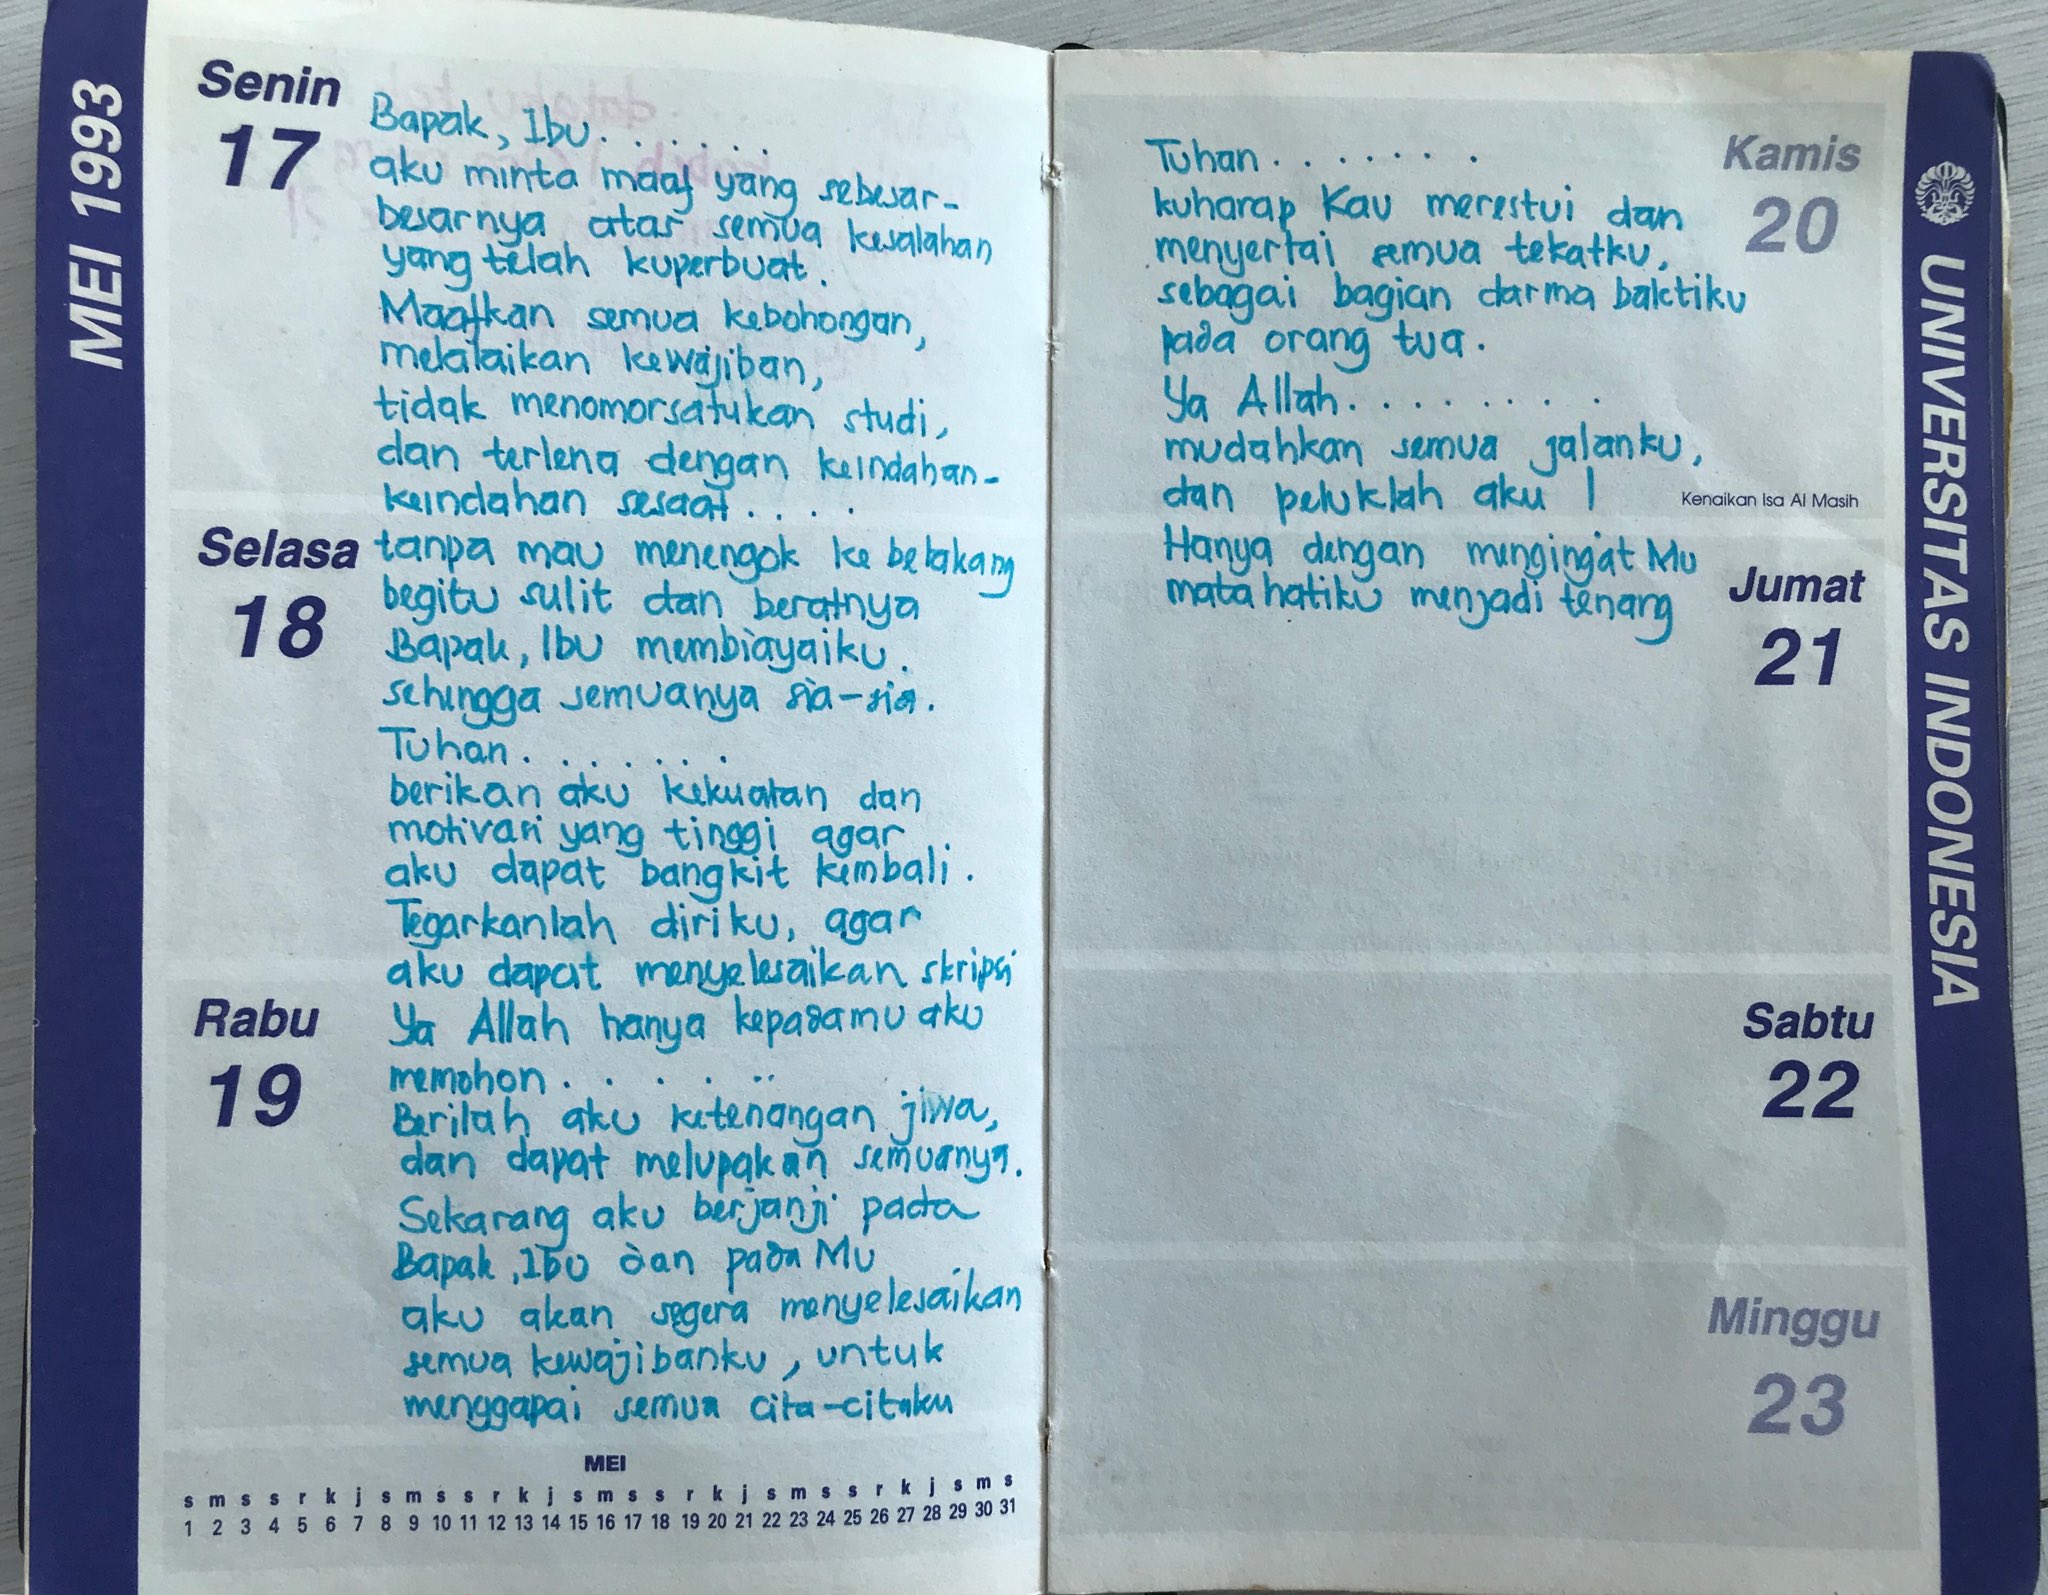 MEI 1993
Senin
17
Bapak, Ibu.......
aku minta maaf yang sebesar-
besarnya atas semua kesalahan
yang telah kuperbuat.
Maafkan semua kebohongan,
melalaikan kewajiban,
tidak menomorsatukan studi,
dan terlena dengan keindahan-
keindahan sesaat....
Selasa
18
tanpa mau menengok ke belakang
begitu sulit dan beratnya
Bapak, Ibu membiayaiku.
sehingga semuanya sia-sia.
Tuhan.......
berikan aku kekuatan dan
motivasi yang tinggi agar
aku dapat bangkit kembali.
Tegarkanlah diriku, agar
aku dapat menyelesaikan skripsi
Rabu
19
Ya Allah hanya kepadamu aku
memohon......
Berilah aku ketenangan jiwa,
dan dapat melupakan semuanya.
Sekarang aku berjanji pada
Bapak, Ibu dan pada Mu
aku akan segera menyelesaikan
semua kewajibanku, untuk
menggapai semua cita-citaku
MEI
s m s s r k j s m s s r k j s m s s r k j s m s s r k j s m s
1 2 3 4 5 6 7 8 9 10 11 12 13 14 15 16 17 18 19 20 21 22 23 24 25 26 27 28 29 30 31
Kamis
20
Tuhan.......
kuharap Kau merestui dan
menyertai semua tekatku,
sebagai bagian darma baktiku
pada orang tua.
Ya Allah........
mudahkan semua jalanku,
dan peluklah aku !
Kenaikan Isa Al Masih
Jumat
21
Hanya dengan mengingat Mu
mata hatiku menjadi tenang
Sabtu
22
Minggu
23
UNIVERSITAS INDONESIA